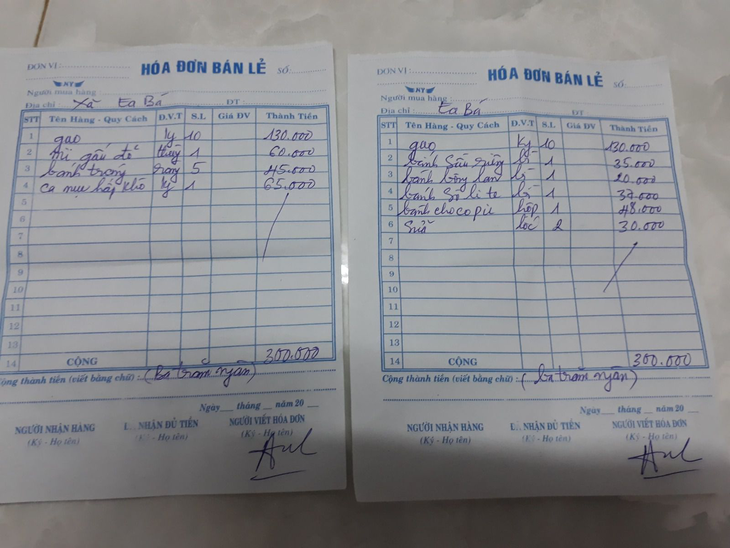 ĐƠN VỊ :
HÓA ĐƠN BÁN LẺ SỐ
NY
Người mua hàng :
Địa chỉ : Xã Ea Bá ĐT :
STT Tên Hàng - Quy Cách Đ.V.T S.L Giá ĐV Thành Tiền
1 gạo kg 10 130.000
2 mì gấu đỏ thùng 1 60.000
3 bánh tráng 5 45.000
4 cá mực hấp khô kg 1 65.000
5
6
7
8
9
10
11
12
13
14 CỘNG 300.000
Cộng thành tiền (viết bằng chữ) : (ba trăm ngàn)
Ngày tháng năm 20
NGƯỜI NHẬN HÀNG NHẬN ĐỦ TIỀN NGƯỜI VIẾT HÓA ĐƠN
(Ký - Họ tên) (Ký - Họ tên) (Ký - Họ tên)
ĐƠN VỊ :
HÓA ĐƠN BÁN LẺ SỐ
NY
Người mua hàng :
Địa chỉ : Ea Bá ĐT
STT Tên Hàng - Quy Cách Đ.V.T S.L Giá ĐV Thành Tiền
1 gạo kg 10 130.000
2 bánh sầu riêng 1 35.000
3 bánh bông lan 1 20.000
4 bánh Sô li te 1 37.000
5 bánh chocopie hộp 1 48.000
6 Sữa lốc 2 30.000
7
8
9
10
11
12
13
14 CỘNG 300.000
Cộng thành tiền (viết bằng chữ) : (ba trăm ngàn)
Ngày tháng năm 20
NGƯỜI NHẬN HÀNG NHẬN ĐỦ TIỀN NGƯỜI VIẾT HÓA ĐƠN
(Ký - Họ tên) (Ký - Họ tên) (Ký - Họ tên)